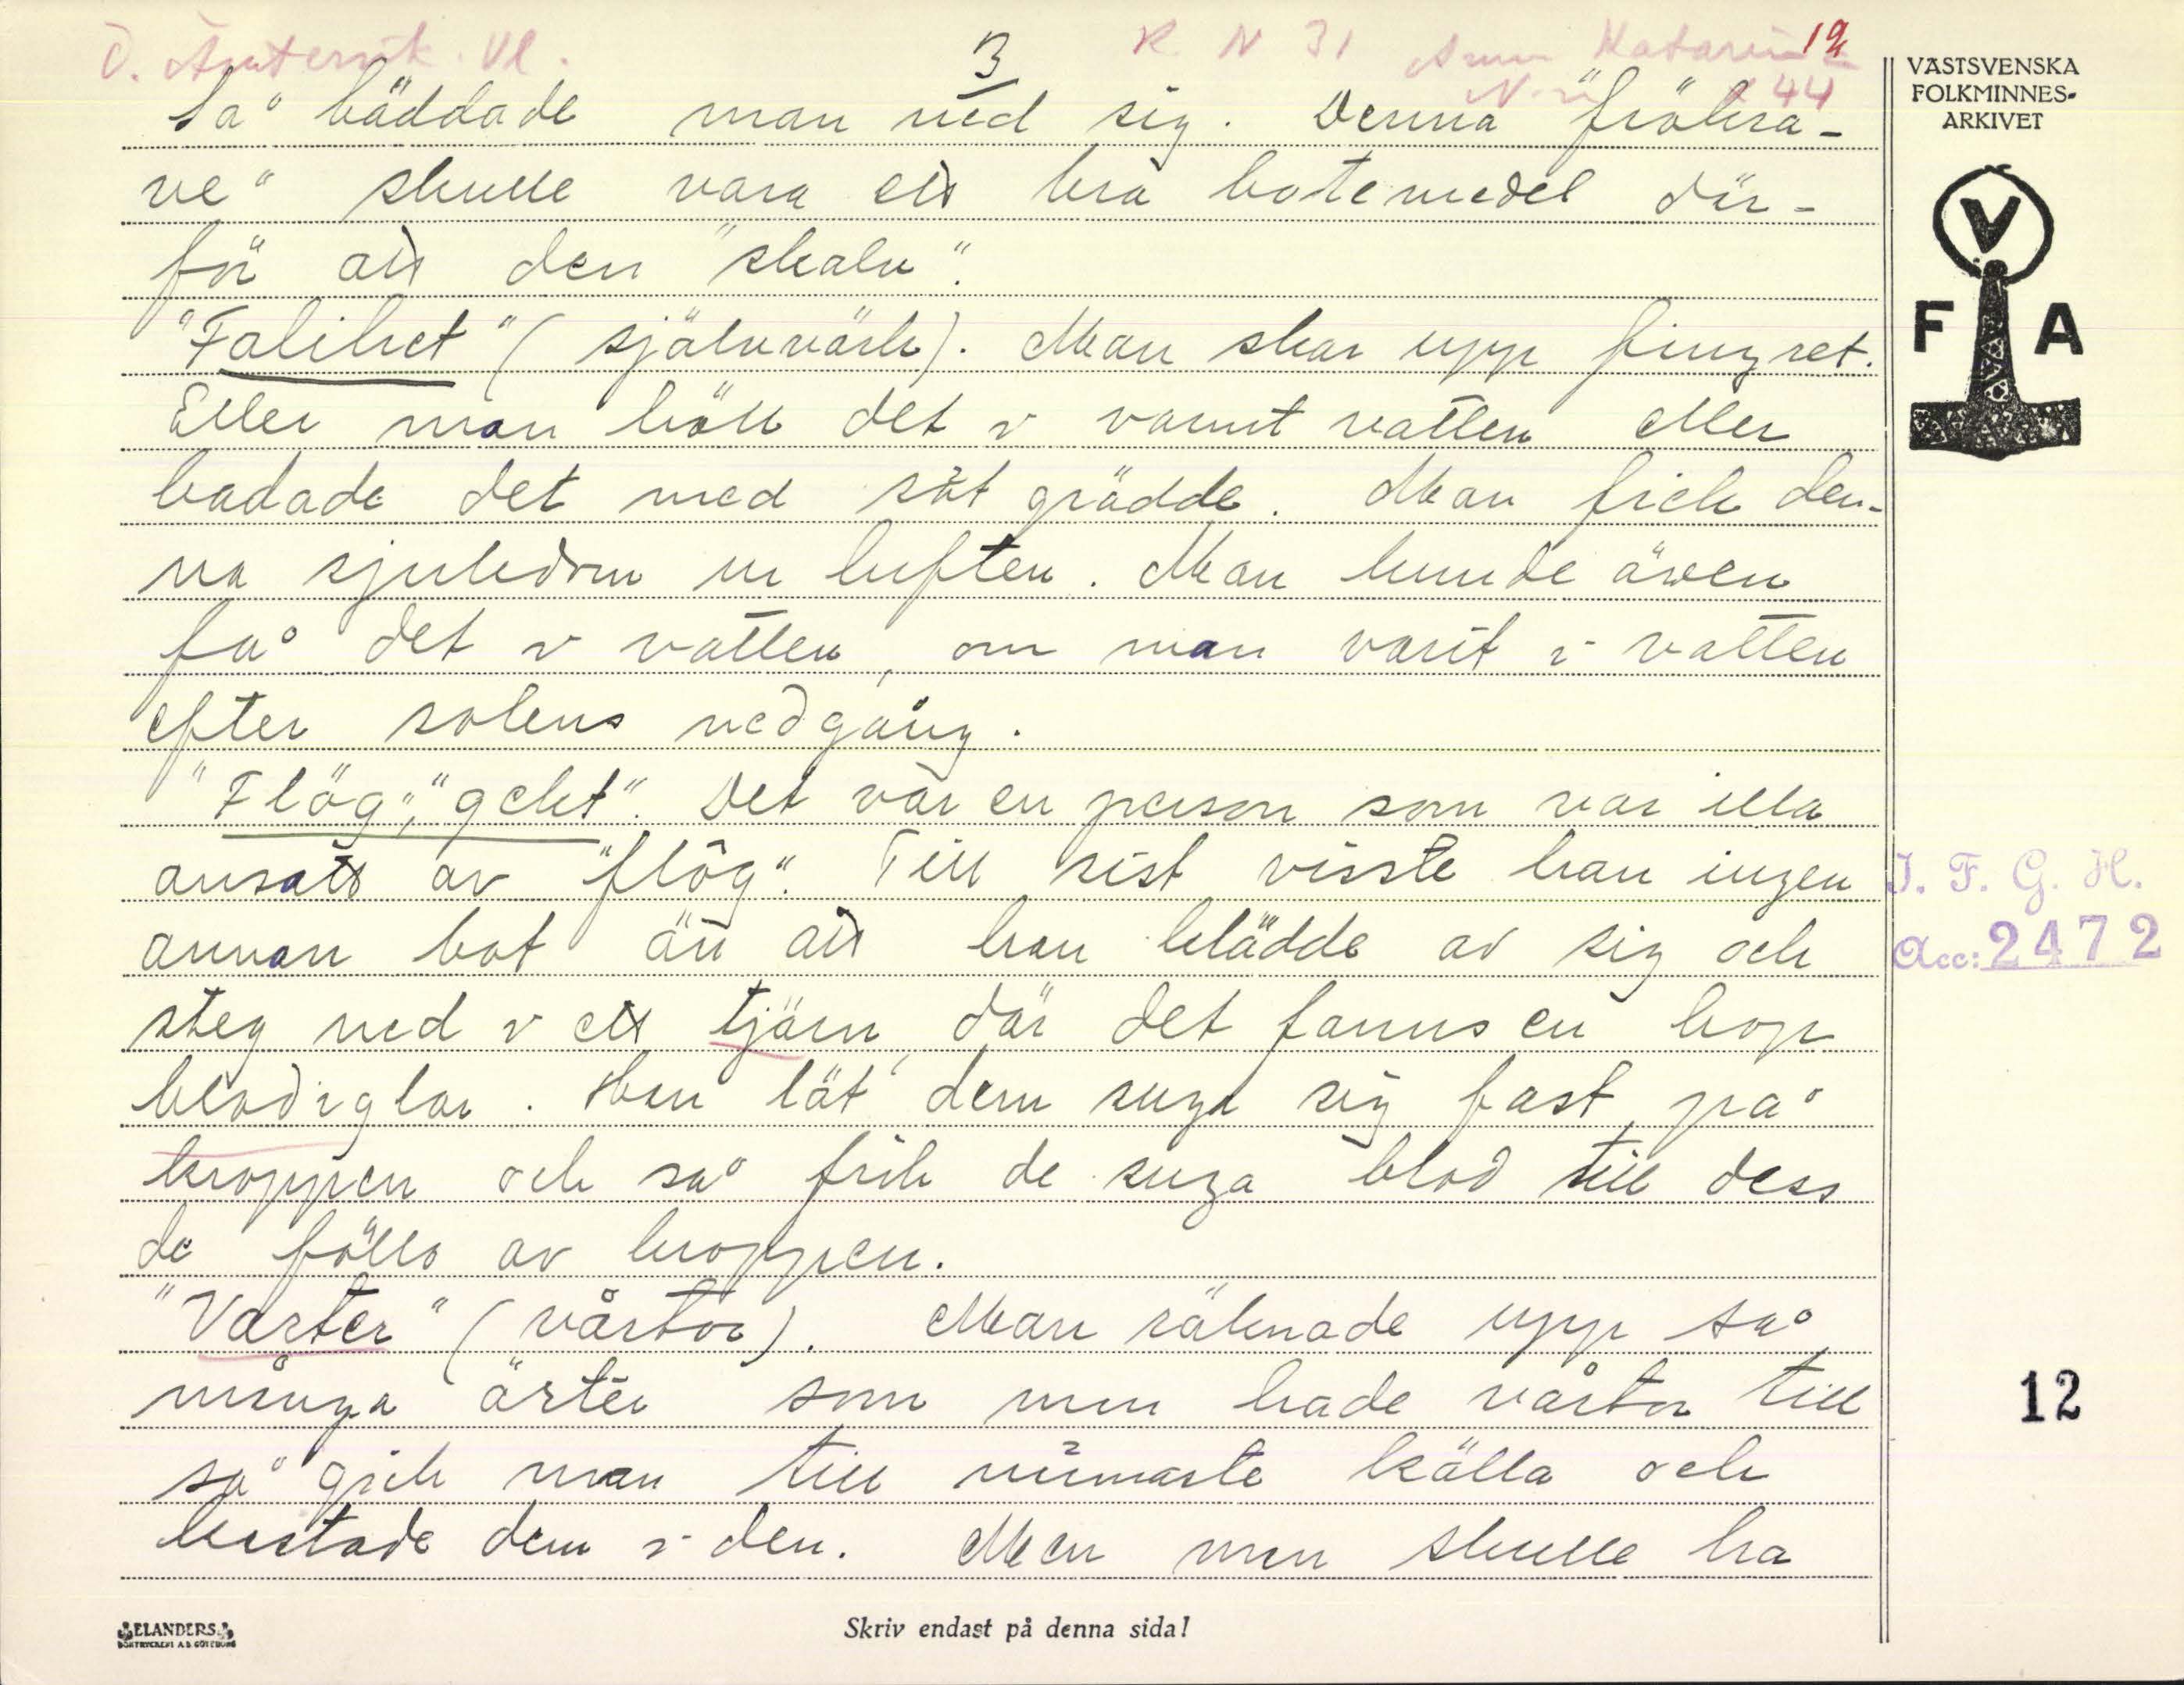 Ö. Ämtervik. Vl.
3
K. N 31
Anna Katarina
12
N
44
VÄSTSVENSKA
FOLKMINNES-
ARKIVET
V
F A
så bäddade man ned sig. Denna "frökra-
ve" skulle vara ett bra botemedel där-
för att den "skalv".
"Falihet" (självvärk). Man skar upp fingret.
Eller man höll det i varmt vatten eller
badade det med söt grädde. Man fick den-
na sjukdom ur luften. Man kunde även
få det i vatten, om man varit i vatten
efter solens nedgång.
"Flög", "gcht". Det var en person som var illa
ansatt av "flög". Till sist visste han ingen
annan bot än att han klädde av sig och
steg ned i ett tjärn, där det fanns en hop
blodiglar. Han lät dem suga sig fast på
kroppen och så fick de suga blod till dess
de föllo av kroppen.
"Varter" (vårtor). Man räknade upp så
många ärter som man hade vårtor till
så gick man till närmaste källa och
kastade dem i den. Men man skulle ha
I. F. G. H.
Acc: 2472
12
ELANDERS
BOKTRYCKERI A.B. GÖTEBORG
Skriv endast på denna sida!